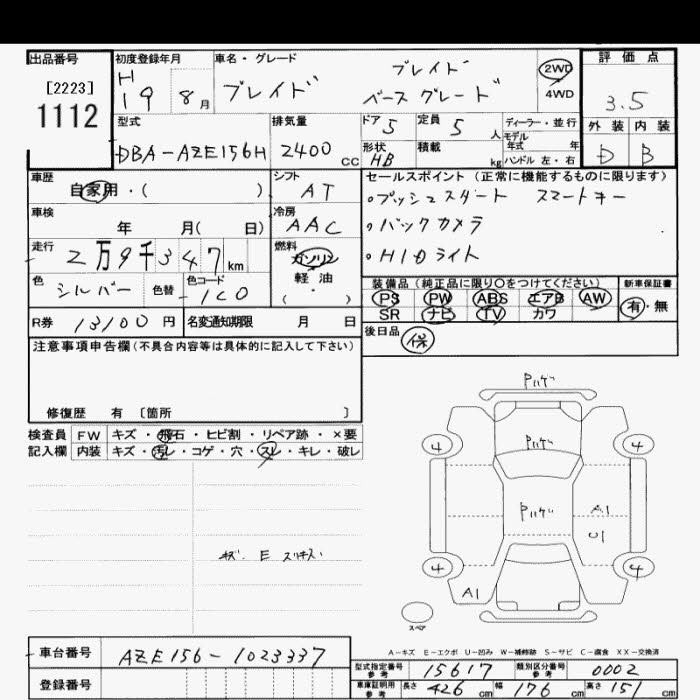 出品番号
[2223]
1112
初度登録年月
H
19 8月
車名・グレード
ブレイド
ブレイド
ベースグレード
2WD
4WD
評価点
3.5
外装 内装
D B
型式
DBA-AZE156H
排気量
2400 cc
ドア 5
定員 5 人
形状 HB
積載 kg
ディーラー・並行
モデル
年式 年
ハンドル 左・右
車歴
自家用・( )
シフト
AT
セールスポイント (正常に機能するものに限ります)
・プッシュスタート スマートキー
・バックカメラ
・HIDライト
車検
年 月( 日)
冷房
AAC
走行
2万9千347km
燃料
ガソリン
軽油
( ・ )
色
シルバー
色替
色コード
1C0
装備品(純正品に限り〇をつけてください)
PS PW ABS エアB AW
SR ナビ TV カワ
新車保証書
有・無
R券 13100 円
名変通知期限 月 日
後日品
保
注意事項申告欄(不具合内容等は具体的に記入して下さい)
修復歴 有 〔箇所 〕
検査員
記入欄
FW キズ・飛石・ヒビ割・リペア跡・×要
内装 キズ・汚レ・コゲ・穴・スレ・キレ・破レ
キズ E スリキズ
Pハゲ
Pハゲ
Pハゲ
4 4
A1
U1
4 4
A1
スペア
A-キズ E-エクボ U-凹み W-補修跡 S-サビ C-腐食 XX-交換済
車台番号
AZE156-1023337
登録番号
型式指定番号
参考
15617
類別区分番号
参考
0002
車庫証明用
参考
長さ 426 cm
幅 176 cm
高さ 151 cm